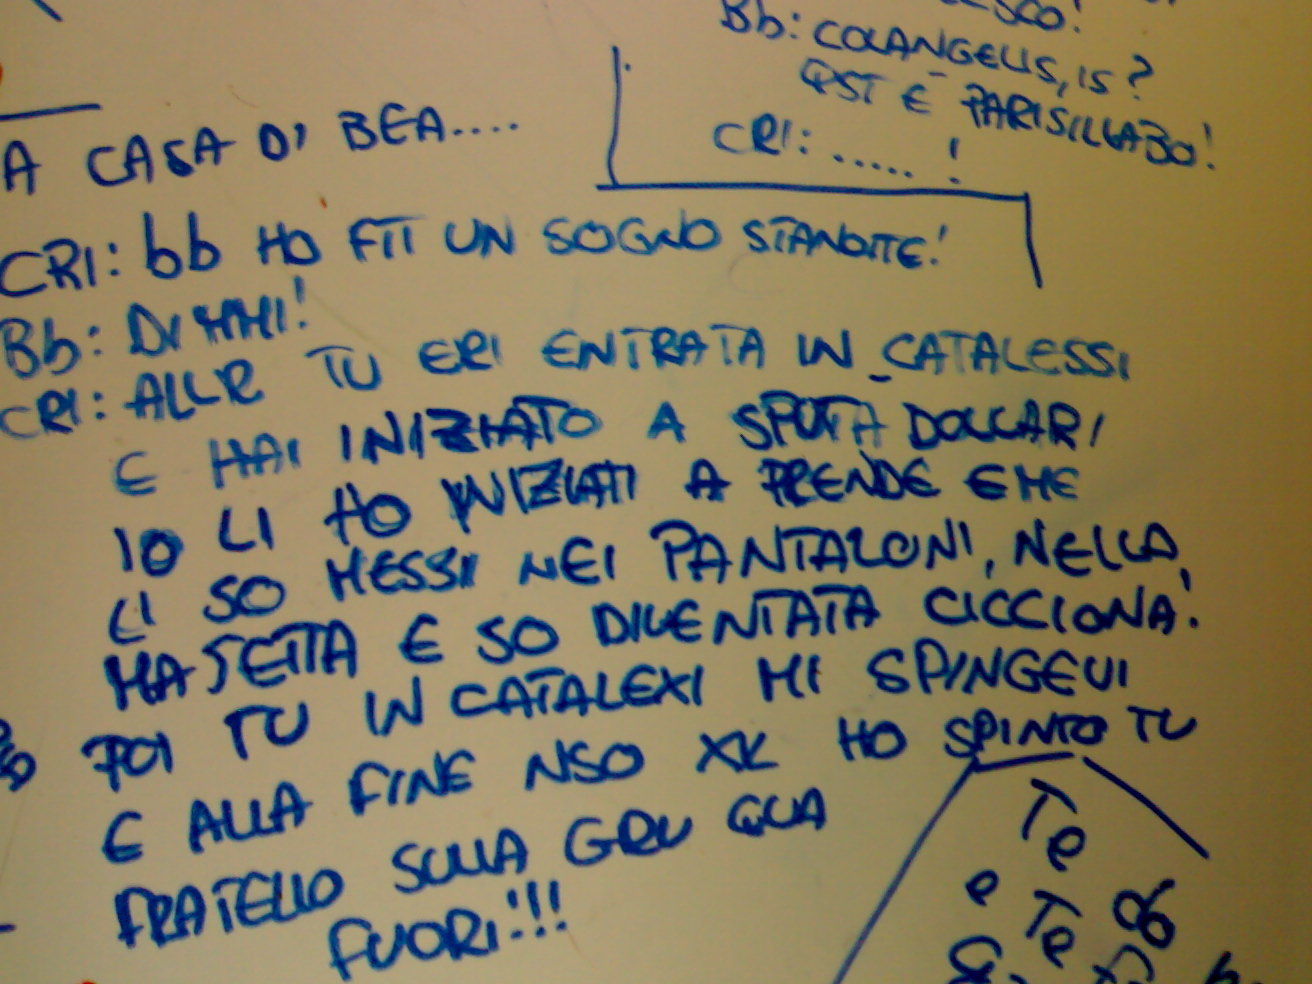 Bb: COLANGELIS, IS?
QST È PARISILLABO!
CRI: ..... !
A CASA DI BEA....
CRI: bb HO FTT UN SOGNO STANOTTE!
Bb: DIMMI!
CRI: ALLR TU ERI ENTRATA IN CATALESSI
E HAI INIZIATO A SPUTA DOLLARI
IO LI HO INIZIATI A PRENDE E ME
LI SO MESSI NEI PANTALONI, NELLA
MAJETTA E SO DIVENTATA CICCIONA!
POI TU IN CATALEXI MI SPINGEVI
E ALLA FINE NSO XK HO SPINTO TU
FRATELLO SULLA GRU QUA
FUORI!!!
Te
e Te